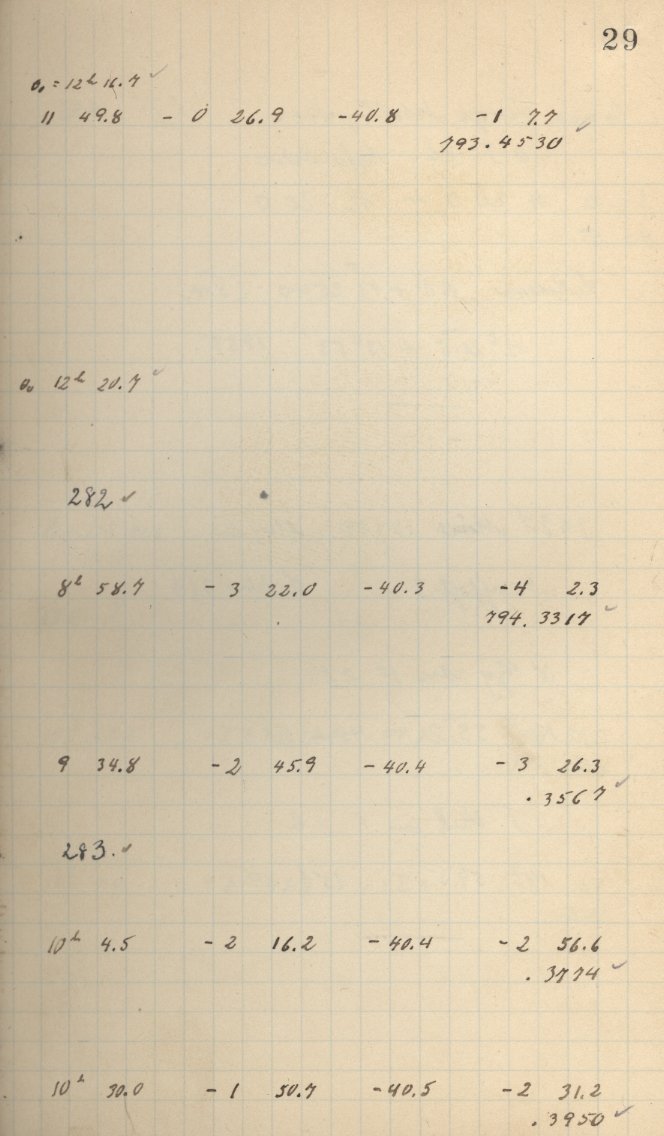 29
0₀ = 12ʰ 16.7 ✓
11 49.8 - 0 26.9 -40.8 -1 7.7
793.4530 ✓
0₀ 12ʰ 20.7 ✓
282 ✓
8ʰ 58.7 - 3 22.0 -40.3 -4 2.3
794.3317 ✓
9 34.8 -2 45.9 -40.4 - 3 26.3
.3567 ✓
283. ✓
10ʰ 4.5 - 2 16.2 -40.4 - 2 56.6
.3774 ✓
10ʰ 30.0 - 1 50.7 -40.5 - 2 31.2
.3950 ✓